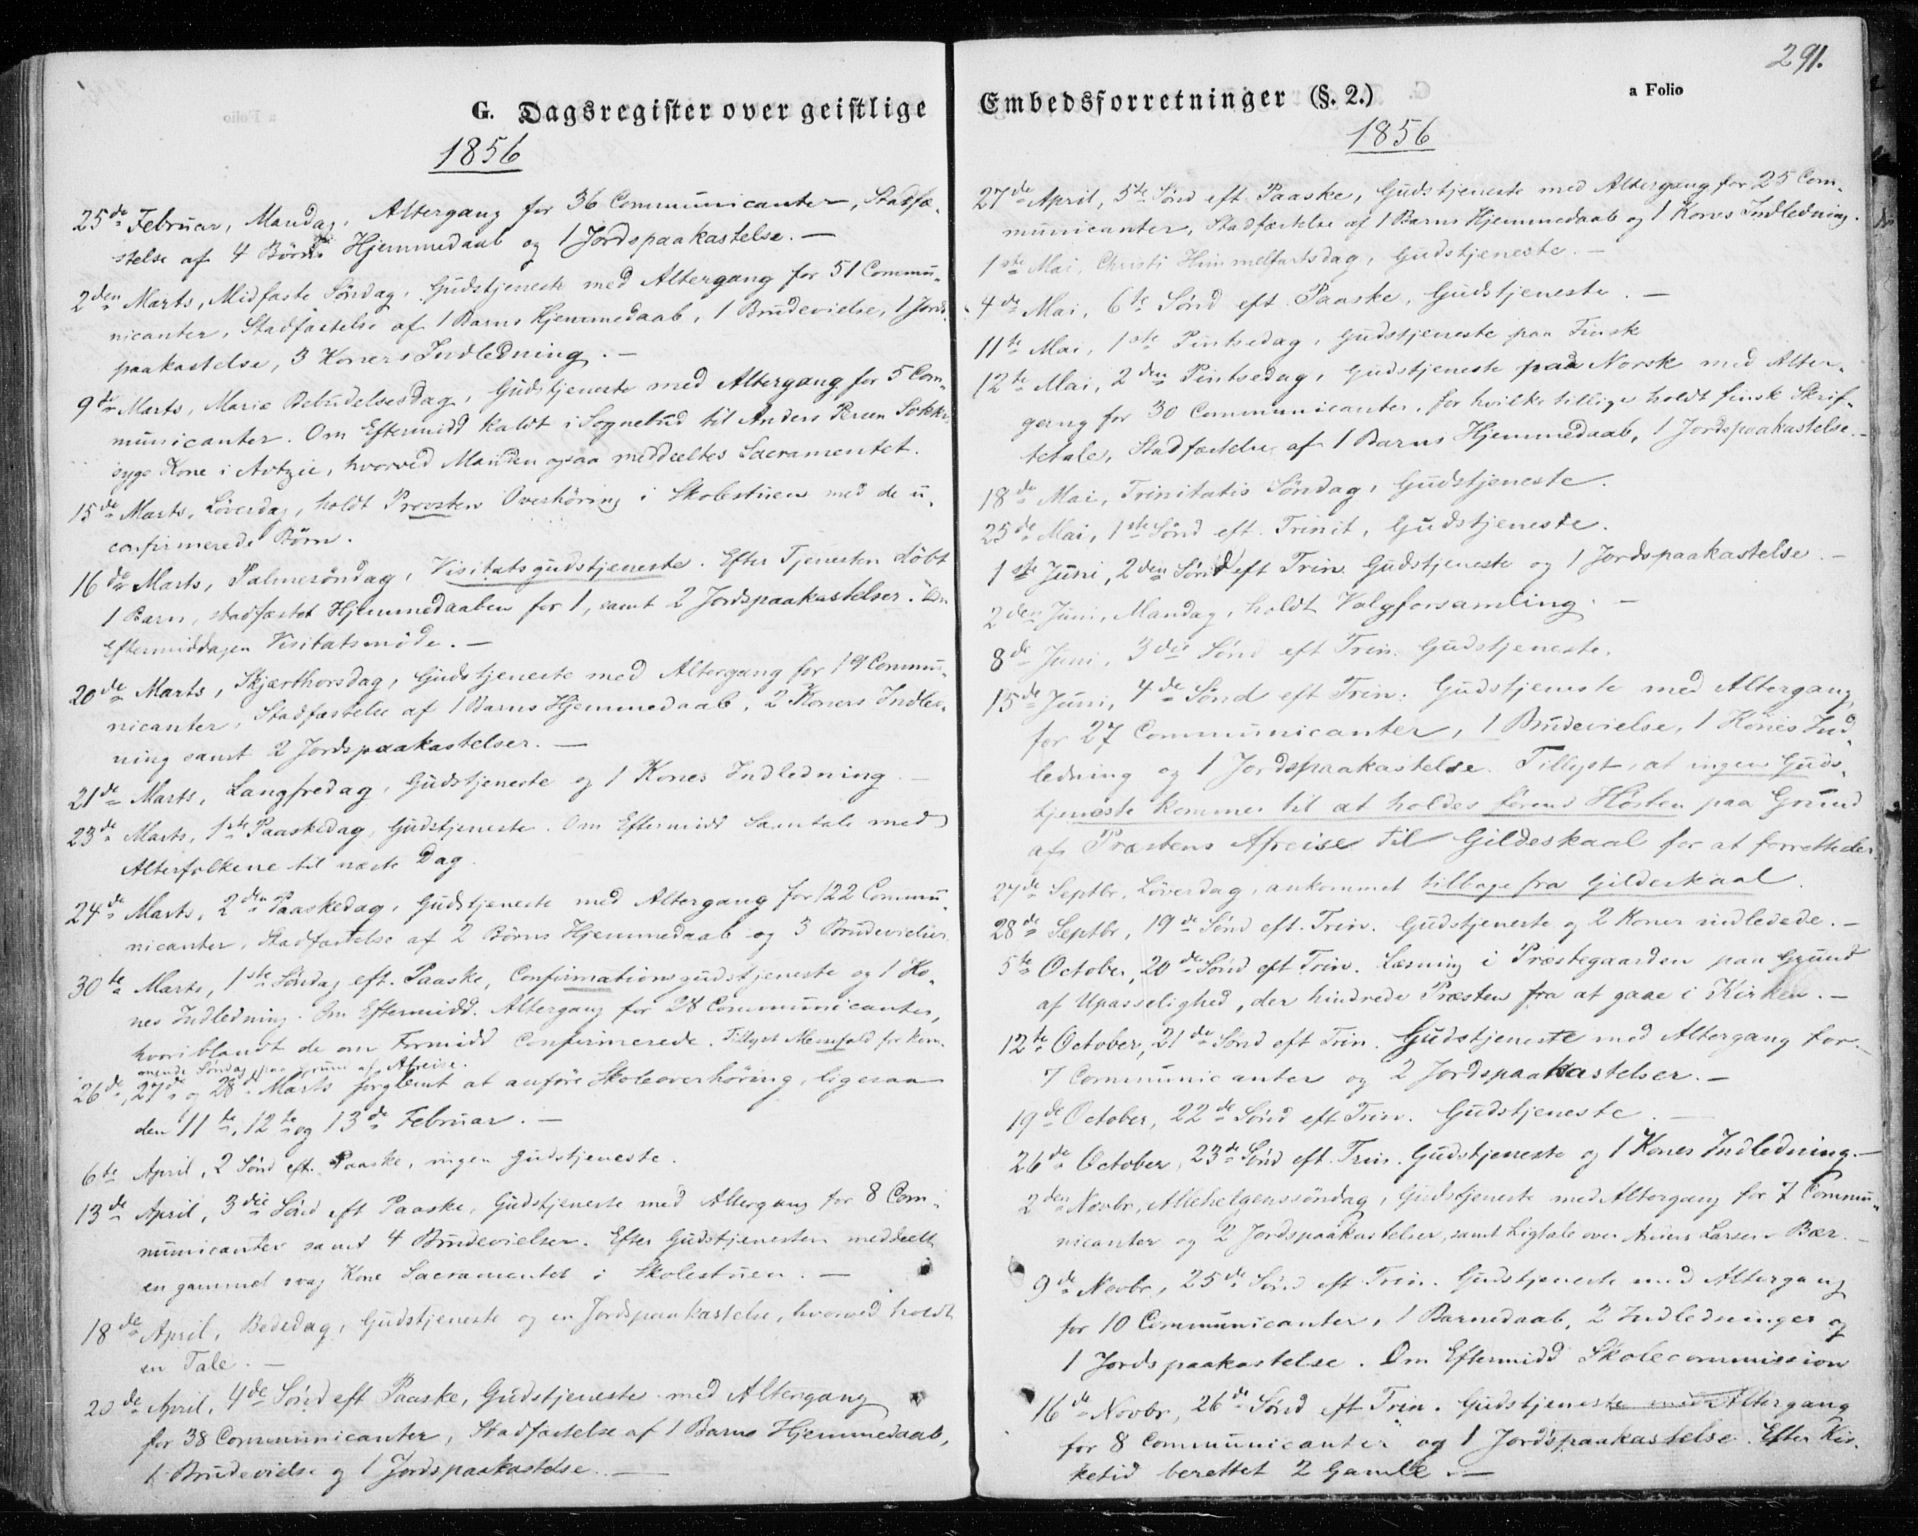 G. Dagsregister over geistlige
1856
25de Februar, Mandag, Altergang for 36 Communicanter, Stadfæ-
stelse af 4 Børns Hjemmedaab og 1 Jordspaakastelse. —
2den Marts, Midfaste Søndag, Gudstjeneste med Altergang for 51 Commu-
nicanter, Stadfæstelse af 1 Barns Hjemmedaab, 1 Brudevielse, 1 Jords-
paakastelse, 3 Koners Indledning. —
9de Marts, Mariæ Bebudelsesdag, Gudstjeneste med Altergang for 5 Com-
municanter. Om Eftermidd kaldt i Sognebud til Anders
syge Kone i, hvorved Manden ogsaa meddeeltes Sacramentet.
15de Marts, Løverdag, holdt Provsten Overhøring i Skolestuen med de u-
confirmerede Børn.
16de Marts, Palmesøndag, Visitatsgudstjeneste. Efter Tjenesten døbt
1 Barn, stadfæstet Hjemmedaaben for 1, samt 2 Jordspaakastelser. Om
Eftermiddagen Visitatsmøde. —
20de Marts, Skjærthorsdag, Gudstjeneste med Altergang for 19 Commu-
nicanter, Stadfæstelse af 1 Barns Hjemmedaab, 2 Koners Indled-
ning samt 2 Jordspaakastelser. —
21de Marts, Langfredag, Gudstjeneste og 1 Kones Indledning. —
23de Marts, 1ste Paaskedag, Gudstjeneste. Om Eftermidd Samtale med
Alterfolkene til næste Dag.
24de Marts, 2den Paaskedag, Gudstjeneste med Altergang for 122 Commu-
nicanter, Stadfæstelse af 2 Børns Hjemmedaab og 3 Brudevielser
30te Marts, 1ste Søndag eft. Paaske, Confirmationsgudstjeneste og 1 Ko-
nes Indledning. Om Eftermidd. Altergang for 28 Communicanter,
hvoriblandt de om Formidd Confirmerede. Tillyst Messefald for kom-
mende Søndag paa Grund af Afreise.
26de, 27de og 28de Marts forglemt at anføre Skoleoverhøring, ligesaa
den 11te, 12te og 13de Februar. —
6te April, 2 Sønd eft. Paaske, ingen Gudstjeneste.
13de April, 3die Sønd eft Paaske, Gudstjeneste med Altergang for 8 Com-
municanter samt 4 Brudevielser. Efter Gudstjenesten meddeelt
en gammel svag Kone Sacramentet i Skolestuen. —
18de April, Bededag, Gudstjeneste og en Jordspaakastelse, hvorved holdt
en Tale. —
20de April, 4de Sønd eft Paaske, Gudstjeneste med Altergang
for 38 Communicanter, Stadfæstelse af 1 Barns Hjemmedaab,
1 Brudevielse og 1 Jordspaakastelse. —
291.
Embedsforretninger (§. 2.)
a Folio
1856
27de April, 5te Sønd eft. Paaske, Gudstjeneste med Altergang for 25 Com-
municanter, Stadfæstelse af 1 Barns Hjemmedaab og 1 Kones Indledning.
1ste Mai, Christi Himmelfartsdag, Gudstjeneste. —
4de Mai, 6te Sønd eft. Paaske, Gudstjeneste. —
11te Mai, 1ste Pintsedag, Gudstjeneste paa Finsk
12te Mai, 2den Pintsedag, Gudstjeneste paa Norsk med Alter-
gang for 30 Communicanter, for hvilke tillige holdt finsk Skrif-
tetale, Stadfæstelse af 1 Barns Hjemmedaab, 1 Jordspaakastelse. —
18de Mai, Trinitatis Søndag, Gudstjeneste.
25de Mai, 1ste Sønd eft. Trinit, Gudstjeneste.
1ste Juni, 2den Sønd eft Trin. Gudstjeneste og 1 Jordspaakastelse. —
2den Juni, Mandag, holdt Valgforsamling. —
8de Juni, 3die Sønd eft Trin. Gudstjeneste.
15de Juni, 4de Sønd eft Trin. Gudstjeneste med Altergang
for 27 Communicanter, 1 Brudevielse, 1 Kones Ind-
ledning og 1 Jordspaakastelse. Tillyst, at ingen Guds-
tjeneste kommer til at holdes førend Høsten paa Grund
af Præstens Afreise til Gildeskaal for at forrette der.
27de Septbr, Løverdag, ankommet tilbage fra Gildeskaal.
28de Septbr, 19de Sønd eft. Trin. Gudstjeneste og 2 Koner indledede. —
5te October, 20de Sønd eft Trin. Læsning i Præstegaarden paa Grund
af Upasselighed, der hindrede Præsten fra at gaae i Kirken. —
12te October, 21de Sønd eft Trin. Gudstjeneste med Altergang for
7 Communicanter og 2 Jordspaakastelser. —
19de October, 22de Sønd eft Trin. Gudstjeneste. —
26de October, 23de Sønd eft. Trin. Gudstjeneste og 1 Kones Indledning. —
2den Novbr, Allehelgenssøndag, Gudstjeneste med Altergang for 7 Commu-
nicanter og 2 Jordspaakastelser, samt Ligtale over Larsen Bær. —
9de Novbr, 25de Sønd eft Trin. Gudstjeneste med Altergang
for 10 Communicanter, 1 Barnedaab, 2 Indledninger og
1 Jordspaakastelse. Om Eftermidd Skolecommission
16de Novbr, 26de Sønd eft Trin. Gudstjeneste med Altergang
for 8 Communicanter og 1 Jordspaakastelse. Efter Kir-
ketid berettet 2 Gamle. —